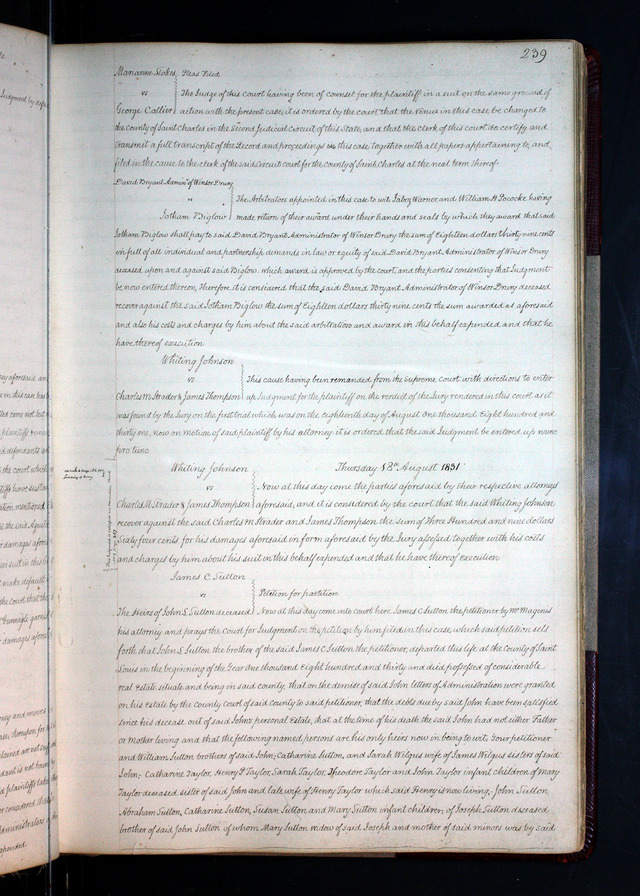 239
Marianne Stokes, Pleas Filed
vs The Judge of this Court having been of counsel for the plaintiff in a suit on the same ground of
George Collier action with the present case, it is ordered by the court that the Venue in this case be changed to
the county of Saint Charles in the Second Judicial circuit of this State, and that the clerk of this court do certify and
transmit a full transcript of the Record and proceedings in this case, together with all papers appertaining to, and
filed in the cause to the clerk of the said Circuit court for the county of Saint Charles at the next term thereof
David Bryant Admor of Winsor Drury
" The Arbitrators appointed in this case to wit, Jabez Warner and William H Pococke having
Jotham Biglow made return of their award under their hands and seals by which they award that said
Jotham Biglow shall pay to said David Bryant Administrator of Winsor Drury the sum of Eighteen dollars thirty nine cents
in full of all individual and partnership demands in law or equity of said David Bryant, Administrator of Winsor Drury
deceased upon and against said Biglow. which award is approved by the court, and the parties consenting that Judgment
be now entered thereon, Therefore, it is considered that the said David Bryant Administrator of Winsor Drury deceased
recover against the said Jotham Biglow the sum of Eighteen dollars thirty nine cents the sum awarded as aforesaid
and also his costs and charges by him about the said arbitration and award in this behalf expended and that he
have thereof execution
Whiting Johnson
vs This cause having been remanded from the Supreme Court with directions to enter
Charles M Strader & James Thompson up Judgment for the plaintiff on the verdict of the Jury rendered in this court as it
was found by the Jury on the first trial which was on the eighteenth day of August One thousand Eight hundred and
thirty one, now on motion of said plaintiff by his attorney it is ordered that the said Judgment be entered up nunc
pro tunc
Whiting Johnson Thursday 18th August 1831
vs Now at this day come the parties aforesaid by their respective attorneys
Charles M. Strader & James Thompson aforesaid, and it is considered by the court that the said Whiting Johnson
recover against the said Charles M Strader and James Thompson the sum of Three Hundred and nine dollars
Sixty four cents for his damages aforesaid in form aforesaid by the Jury assessed together with his costs
and charges by him about his suit in this behalf expended and that he have thereof execution
James C Sutton
vs Petition for partition
The Heirs of John L Sutton deceased Now at this day come into court here James C Sutton the petitioner by Mr Magenis
his attorney and prays the Court for Judgment on the petition by him filed in this case, which said petition sets
forth that John L Sutton the brother of the said James C Sutton the petitioner, departed this life at the County of Saint
Louis in the beginning of the Year One thousand Eight hundred and thirty and died possessed of considerable
real Estate situate and being in said county, that on the demise of said John letters of Administration were granted
on his Estate by the county court of said county to said petitioner, that the debts due by said John have been satisfied
since his decease out of said Johns personal Estate, that at the time of his death the said John had not either Father
or Mother living and that the following named persons are his only heirs now in being to wit, Your petitioner
and William Sutton brothers of said John, Catharine Sutton, and Sarah Wilgus wife of James Wilgus sisters of said
John, Catharine Taylor, Henry P Taylor, Sarah Taylor, Theodore Taylor and John Taylor infant children of Mary
Taylor deceased sister of said John and late wife of Henry Taylor which said Henry is now living, John Sutton
Abraham Sutton, Catharine Sutton, Susan Sutton and Mary Sutton infant children of Joseph Sutton deceased
brother of said John Sutton of whom Mary Sutton widow of said Joseph and mother of said minors was by said